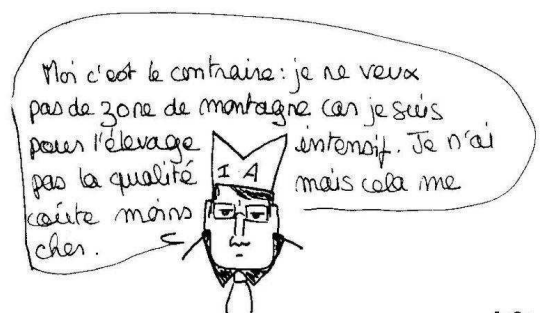 Moi c'est le contraire : je ne veux
pas de zone de montagne car je suis
pour l'élevage intensif. Je n'ai
pas la qualité mais cela me
coûte moins
cher.
I A